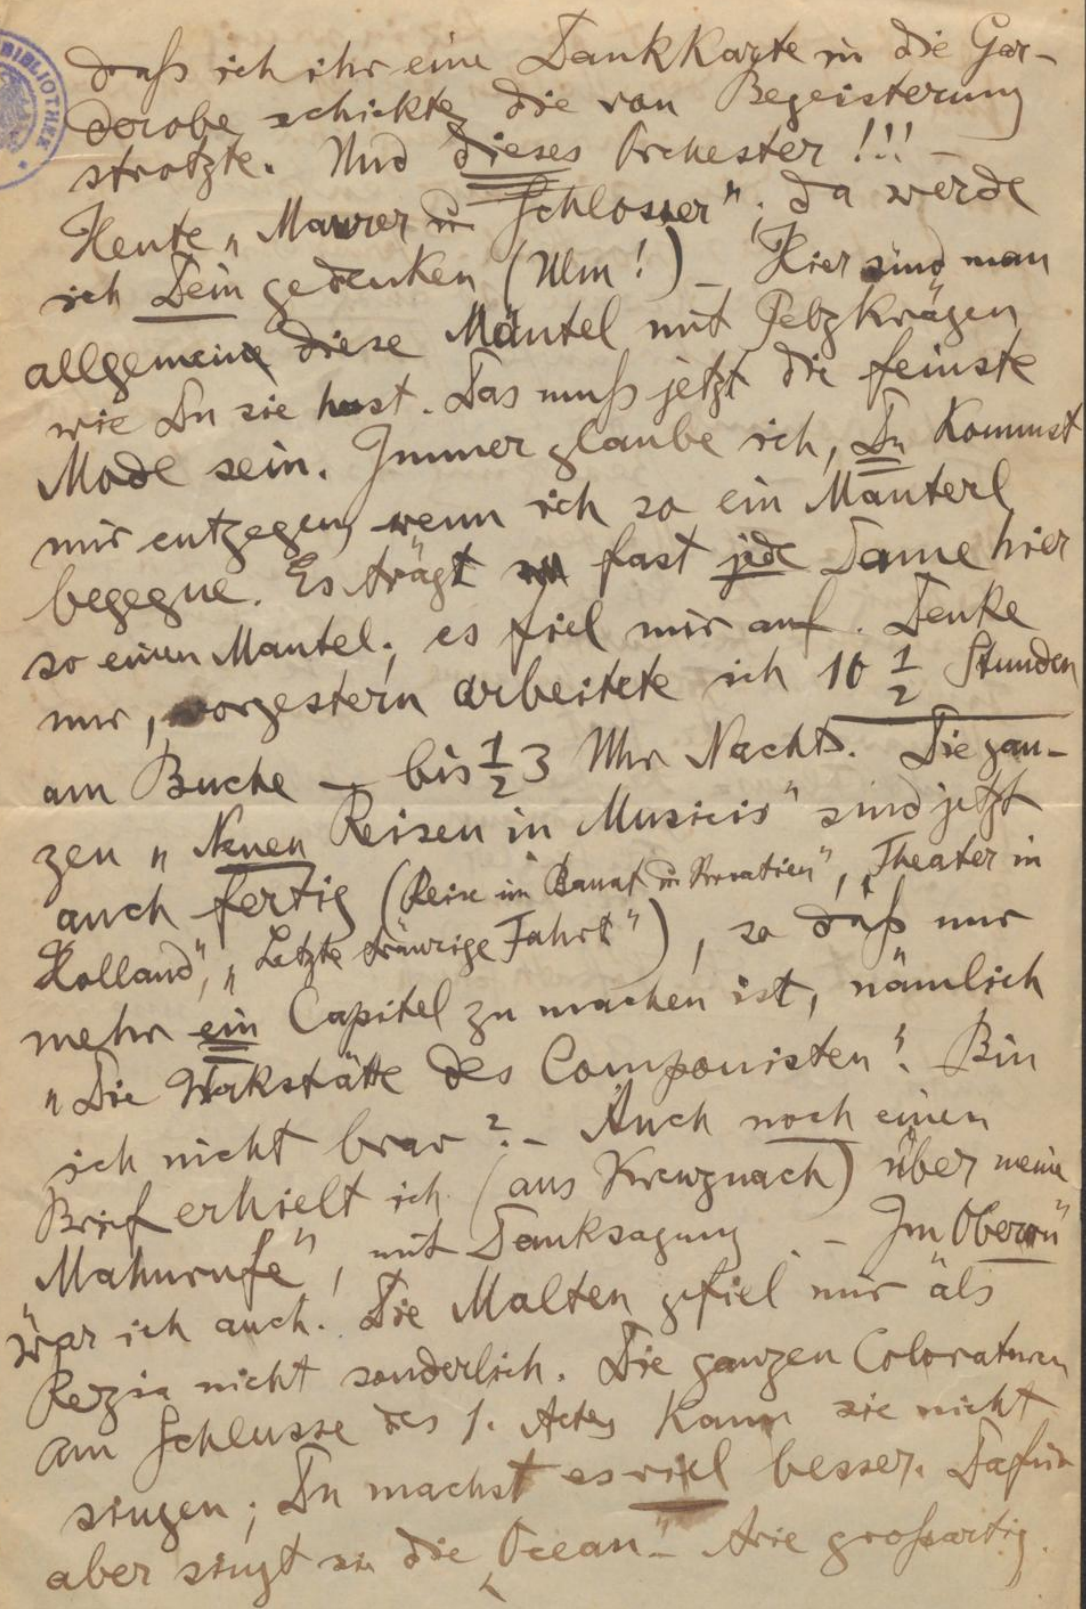 BIBLIOTHEK
daß ich ihr eine Dankkarte in die Gar-
derobe schickte, die von Begeisterung
strotzte. Und dieses Orchester !!! –
Heute „Maurer u. Schlosser"; da werde
ich Dein gedenken (Ulm!) – Hier sind man
allgemein diese Mäntel mit Pelzkrägen
wie Du sie hast. Das muß jetzt die feinste
Mode sein. Immer glaube ich, Du kommst
mir entgegen, wenn ich so ein Mänterl
begegne. Es trägt fast jede Dame hier
so einen Mantel; es fiel mir auf. Denke
nur, vorgestern arbeitete ich 10 1/2 Stunden
am Buche – bis 1/2 3 Uhr Nachts. Die gan-
zen „Neuen Reisen in Musicis" sind jetzt
auch fertig (Reise im Banat u. Kroatien", „Theater in
Holland", „Letzte traurige Fahrt"), so daß nur
mehr ein Capitel zu machen ist, nämlich
„Die Werkstätte des Componisten". Bin
ich nicht brav? – Auch noch einen
Brief erhielt ich (aus Kreuznach) über meine
„Mahnrufe", mit Danksagung. – Im „Oberon"
war ich auch. Die Malten gefiel mir als
Rezia nicht sonderlich. Die ganzen Coloraturen
am Schlusse des 1. Actes kann sie nicht
singen; Du machst es viel besser. Dafür
aber singt sie die „Ocean"- Arie großartig.